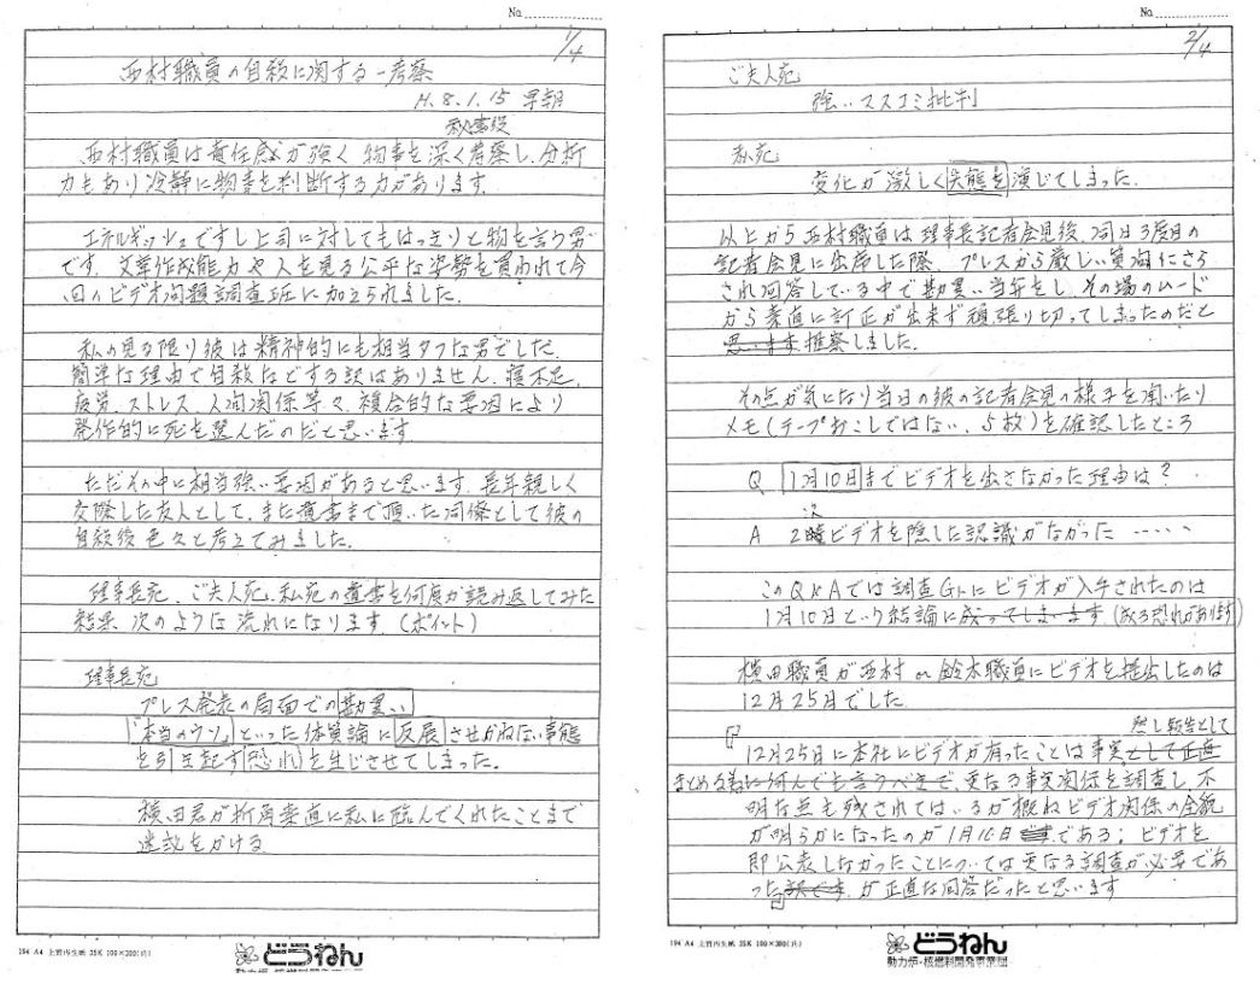 No.
1/4
西村職員の自殺に関する一考察
H.8.1.15 早朝
秘書役
西村職員は責任感が強く 物事を深く考察し、分析
力もあり冷静に物事を判断する力があります。
エネルギッシュですし上司に対してもはっきりと物を言う男
です。文章作成能力や人を見る公平な姿勢を買われて今
回のビデオ問題調査班に加えられました。
私の見る限り彼は精神的にも相当タフな男でした。
簡単な理由で自殺などする訳はありません。寝不足、
疲労、ストレス、人間関係等々、複合的な要因により
発作的に死を選んだのだと思います
ただその中に相当強い要因があると思います。長年親しく
交際した友人として、また遺書まで頂いた同僚として彼の
自殺後色々と考えてみました。
理事長宛、ご夫人宛、私宛の遺書を何度か読み返してみた
結果、次のような流れになります。(ポイント)
理事長宛
プレス発表の局面での勘異い
「本当のウソ」といった体質論に反展させかねない事態
を引き起す恐れを生じさせてしまった。
横田君が折角素直に私に臨んでくれたことまで
迷惑をかける
194 A4 上質再生紙 35K 100×200(六)
どうねん
動力炉・核燃料開発事業団
No.
2/4
ご夫人宛
強いマスコミ批判
私宛
変化が激しく失態を演じてしまった。
以上から西村職員は理事長記者会見後、同日3度目の
記者会見に出席した際、プレスから厳しい質問にさら
され回答している中で勘異い当弁をし、その場のムード
から素直に訂正が出来ず頑張り切ってしまったのだと
思います 推察しました。
その点が気になり当日の彼の記者会見の様子を聞いたり
メモ(テープおこしではない、5枚)を確認したところ
Q 1月10日までビデオを出さなかった理由は?
次
A 2時ビデオを隠した認識がなかった ‥‥‥
このQ&Aでは調査Gr.にビデオが入手されたのは
1月10日という結論に成ってしまいます。(成る恐れがあります)
横田職員が西村 or 鈴木職員にビデオを提出したのは
12月25日でした。
然し報告として
「12月25日に本社にビデオが有ったことは事実として正直
まとめる為に何んでも言うべきで、更なる事実関係を調査し、不
明な点も残されてはいるが概ねビデオ関係の全貌
が明らかになったのが1月10日である; ビデオを
即公表しなかったことについては更なる調査が必要であ
った」が正直な回答だったと思います
194 A4 上質再生紙 35K 100×200(六)
どうねん
動力炉・核燃料開発事業団